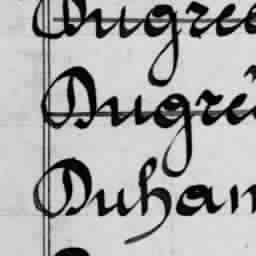 Dugree
Dugré
Duham